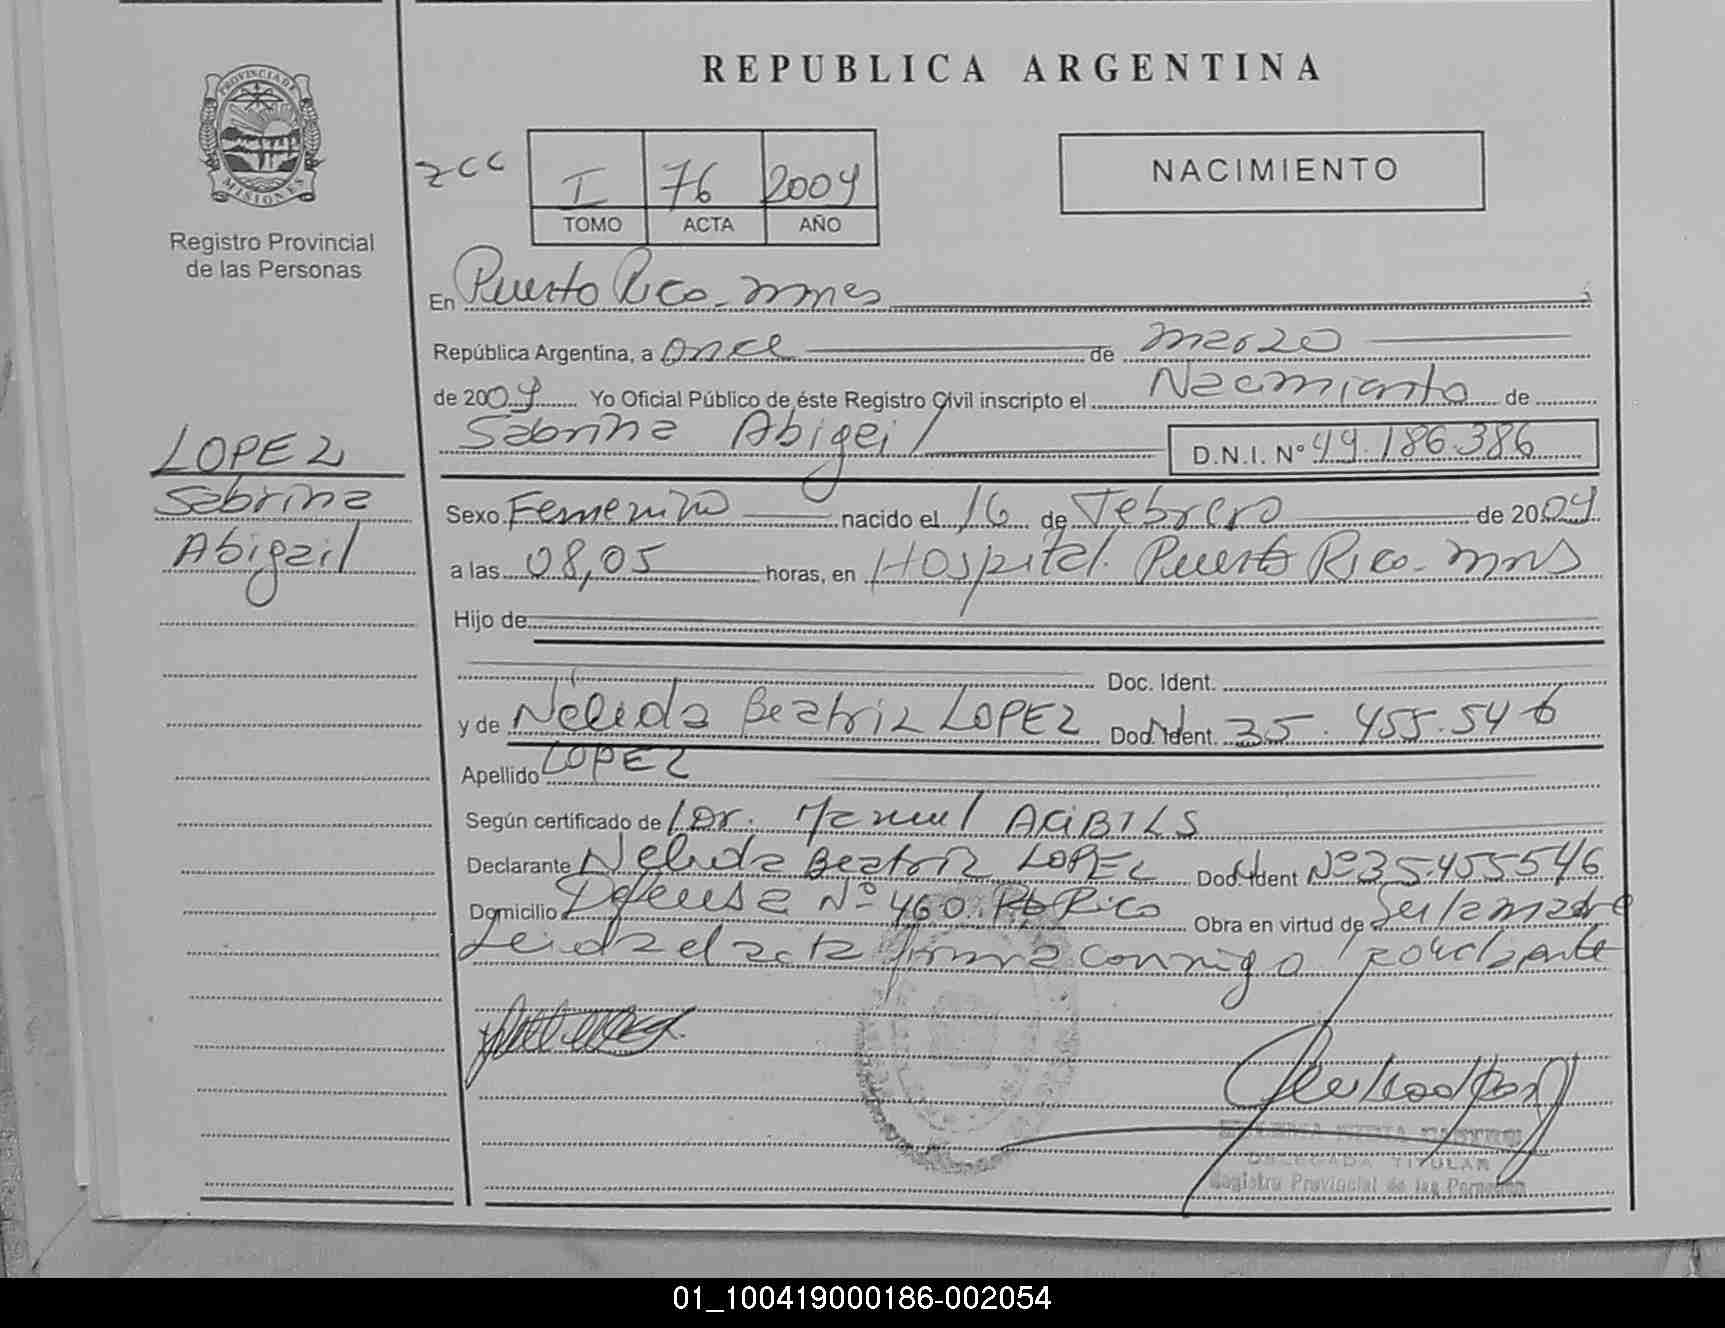 REPUBLICA ARGENTINA
PROVINCIA DE
MISIONES
Registro Provincial
de las Personas
zcc
I 76 2009
TOMO ACTA AÑO
NACIMIENTO
En Puerto Rico - mnes
República Argentina, a once de marzo
de 2009 Yo Oficial Público de éste Registro Civil inscripto el Nacimiento de
Sabrina Abigail D.N.I. Nº 49.186.386
LOPEZ
Sabrina
Abigail
Sexo Femenino nacido el 16 de Febrero de 2009
a las 08,05 horas, en Hospital. Puerto Rico - mns
Hijo de
Doc. Ident.
y de Nélida Beatriz LOPEZ Doc. Ident. 35.455.546
Apellido LOPEZ
Según certificado de Dr. Manuel ACIBILS
Declarante Nelida Beatriz LOPEZ Doc. Ident Nº 35.455546
Domicilio Defensa Nº 460. Pto Rico Obra en virtud de ser la madre
Leida el acta firma conmigo
DELEGADA TITULAR
Registro Provincial de las Personas
01_100419000186-002054